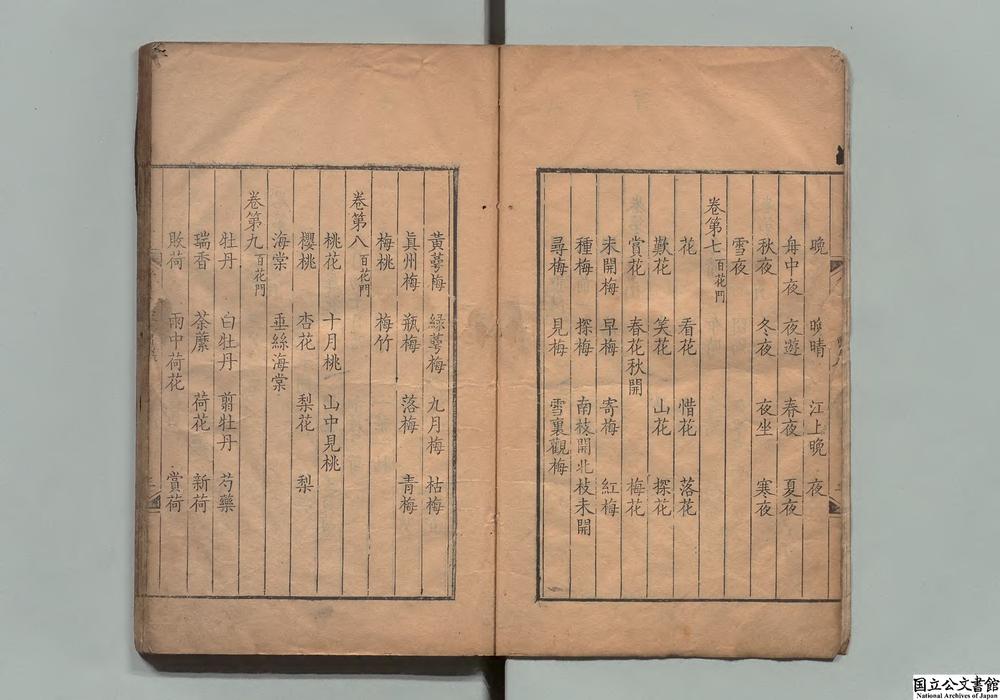 晚 晚晴 江上晚 夜
舟中夜 夜遊 春夜 夏夜
秋夜 冬夜 夜坐 寒夜
雪夜
卷第七 百花門
花 看花 惜花 落花
歎花 笑花 山花 探花
賞花 春花秋開 梅花
未開梅 早梅 寄梅 紅梅
種梅 探梅 南枝開北枝未開
尋梅 見梅 雪裏觀梅
黃萼梅 綠萼梅 九月梅 枯梅
眞州梅 瓶梅 落梅 青梅
梅桃 梅竹
卷第八 百花門
桃花 十月桃 山中見桃
櫻桃 杏花 梨花 梨
海棠 垂絲海棠
卷第九 百花門
牡丹 白牡丹 翦牡丹 芍藥
瑞香 荼蘼 荷花 新荷
敗荷 雨中荷花 賞荷
国立公文書館
National Archives of Japan